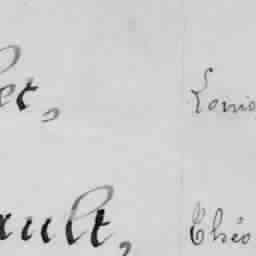 et, Louis
ault, Théo